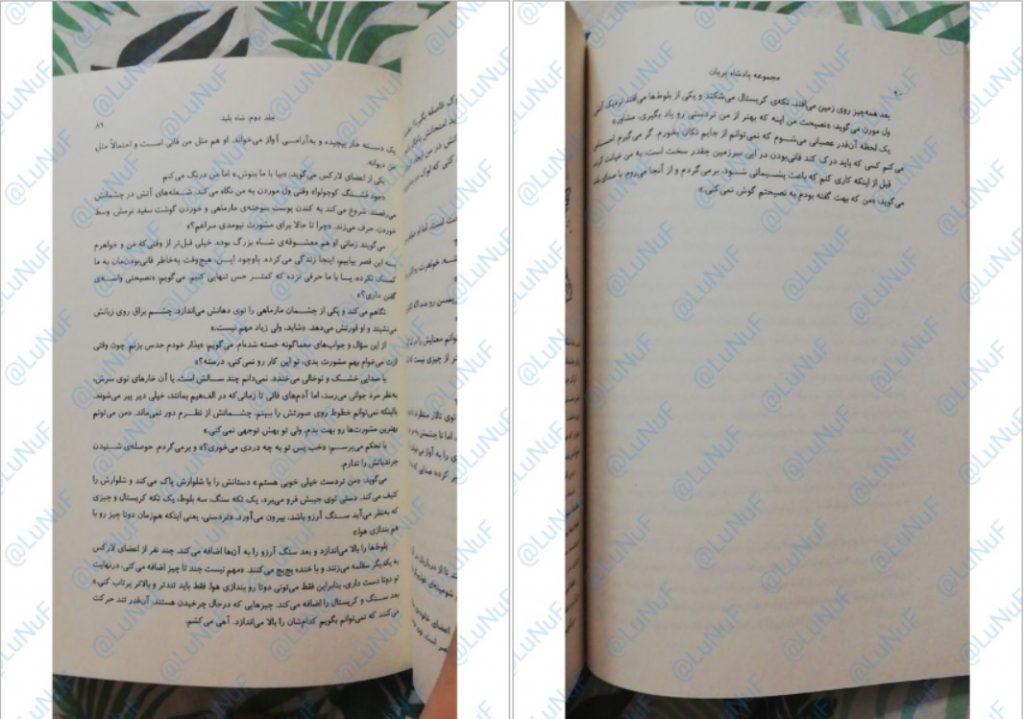 جلد دوم: شاه پلید
۸۹
یک دسته خاز پیچیده و به‌آرامی آواز می‌خواند. او هم مثل من فانی است و احتمالاً مثل
من دیوانه.
یکی از اعضای لارکس می‌گوید: «بیا با ما بنوش.» اما من درنگ می‌کنم
«چود قشنگ کوچولو!» وقتی ول موردن به من نگاه می‌کند، شعله‌های آتش در چشمانش
می‌رقصند. شروع می‌کند به کندن پوست سوخته‌ی مارماهی و خوردن گوشت سفید نرمش وسط
خوردن حرف می‌زند. «چرا تا حالا برای مشورت نیومدی سراغم؟»
می‌گویند زمانی او هم معشوقه‌ی شاه بزرگ بوده. خیلی قبل‌تر از وقتی‌که من و خواهرم
به این قصر بیاییم، اینجا زندگی می‌کرده. باوجود این، هیچ‌وقت به‌خاطر فانی‌بودن‌مان به ما
کمک نکرده. یا با ما حرفی نزده که کمتر حس تنهایی کنیم. می‌گویم: «نصیحتی واسه‌ی
گفتن داری؟»
نگاهم می‌کند و یکی از چشمان مارماهی را توی دهانش می‌اندازد. چشم براق روی زبانش
می‌نشیند و او قورتش می‌دهد. «شاید. ولی زیاد مهم نیست.»
از این سؤال و جواب‌های معماگونه خسته شده‌ام. می‌گویم: «بذار خودم حدس بزنم. چون وقتی
ازت می‌خوام بهم مشورت بدی، تو این کار رو نمی‌کنی، درسته؟»
با صدایی خشک و توخالی می‌خندد. نمی‌دانم چند سالش است. با آن خارهای توی سرش،
به‌نظر مرد جوانی می‌رسد، اما آدم‌های فانی تا زمانی که در الف‌هیم بمانند، خیلی دیر پیر می‌شوند.
بااینکه نمی‌توانم خطوط روی صورتش را ببینم، چشمانش از نظرم دور نمی‌ماند. «من می‌تونم
بهترین مشورت‌ها رو بهت بدم. ولی تو بهش توجهی نمی‌کنی.»
با تحکم می‌پرسم: «خب پس تو به چه دردی می‌خوری؟» و برمی‌گردم. حوصله‌ی شنیدن
چرندیاتش را ندارم.
می‌گوید: «من تردست خیلی خوبی هستم.» دستانش را با شلوارش پاک می‌کند و شلوارش را
کثیف می‌کند. دستی توی جیبش فرو می‌برد، یک تکه سنگ، سه بلوط، یک تکه کریستال و چیزی
که به‌نظر می‌آید سنگ آرزو باشد، بیرون می‌آورد. «تردستی، یعنی اینکه هم‌زمان دوتا چیز رو با
هم بندازی هوا.»
بلوط‌ها را بالا می‌اندازد و بعد سنگ آرزو را به آن‌ها اضافه می‌کند. چند نفر از اعضای لارکس
به یکدیگر سقلمه می‌زنند و با خنده پچ‌پچ می‌کنند. «مهم نیست چند تا چیز اضافه می‌کنی، درنهایت
تو دوتا دست داری، بنابراین فقط می‌تونی دوتا رو بندازی هوا. فقط باید تندتر و بالاتر پرتاب کنی.»
بعد سنگ و کریستال را اضافه می‌کند. چیزهایی که درحال چرخیدن هستند، آن‌قدر تند حرکت
می‌کنند که نمی‌توانم بگویم کدام‌شان را بالا می‌اندازد. آهی می‌کشم.
مجموعه پادشاه پریان
بعد همه‌چیز روی زمین می‌افتد. تکه‌ی کریستال می‌شکند و یکی از بلوط‌ها می‌افتد نزدیک آتش.
ول مورن می‌گوید: «نصیحت من اینه که بهتر از من تردستی رو یاد بگیری، مشاور.»
یک لحظه آن‌قدر عصبانی می‌شوم که نمی‌توانم از جایم تکان بخورم. گر می‌گیرم. احساس
می‌کنم کسی که باید درک کند فانی‌بودن در این سرزمین چقدر سخت است، به من خیانت کرده.
قبل از اینکه کاری کنم که باعث پشیمانی شود، برمی‌گردم و از آنجا می‌روم. با صدای بلند
می‌گوید: «من که بهت گفته بودم به نصیحتم گوش نمی‌کنی.»
@LuNuF